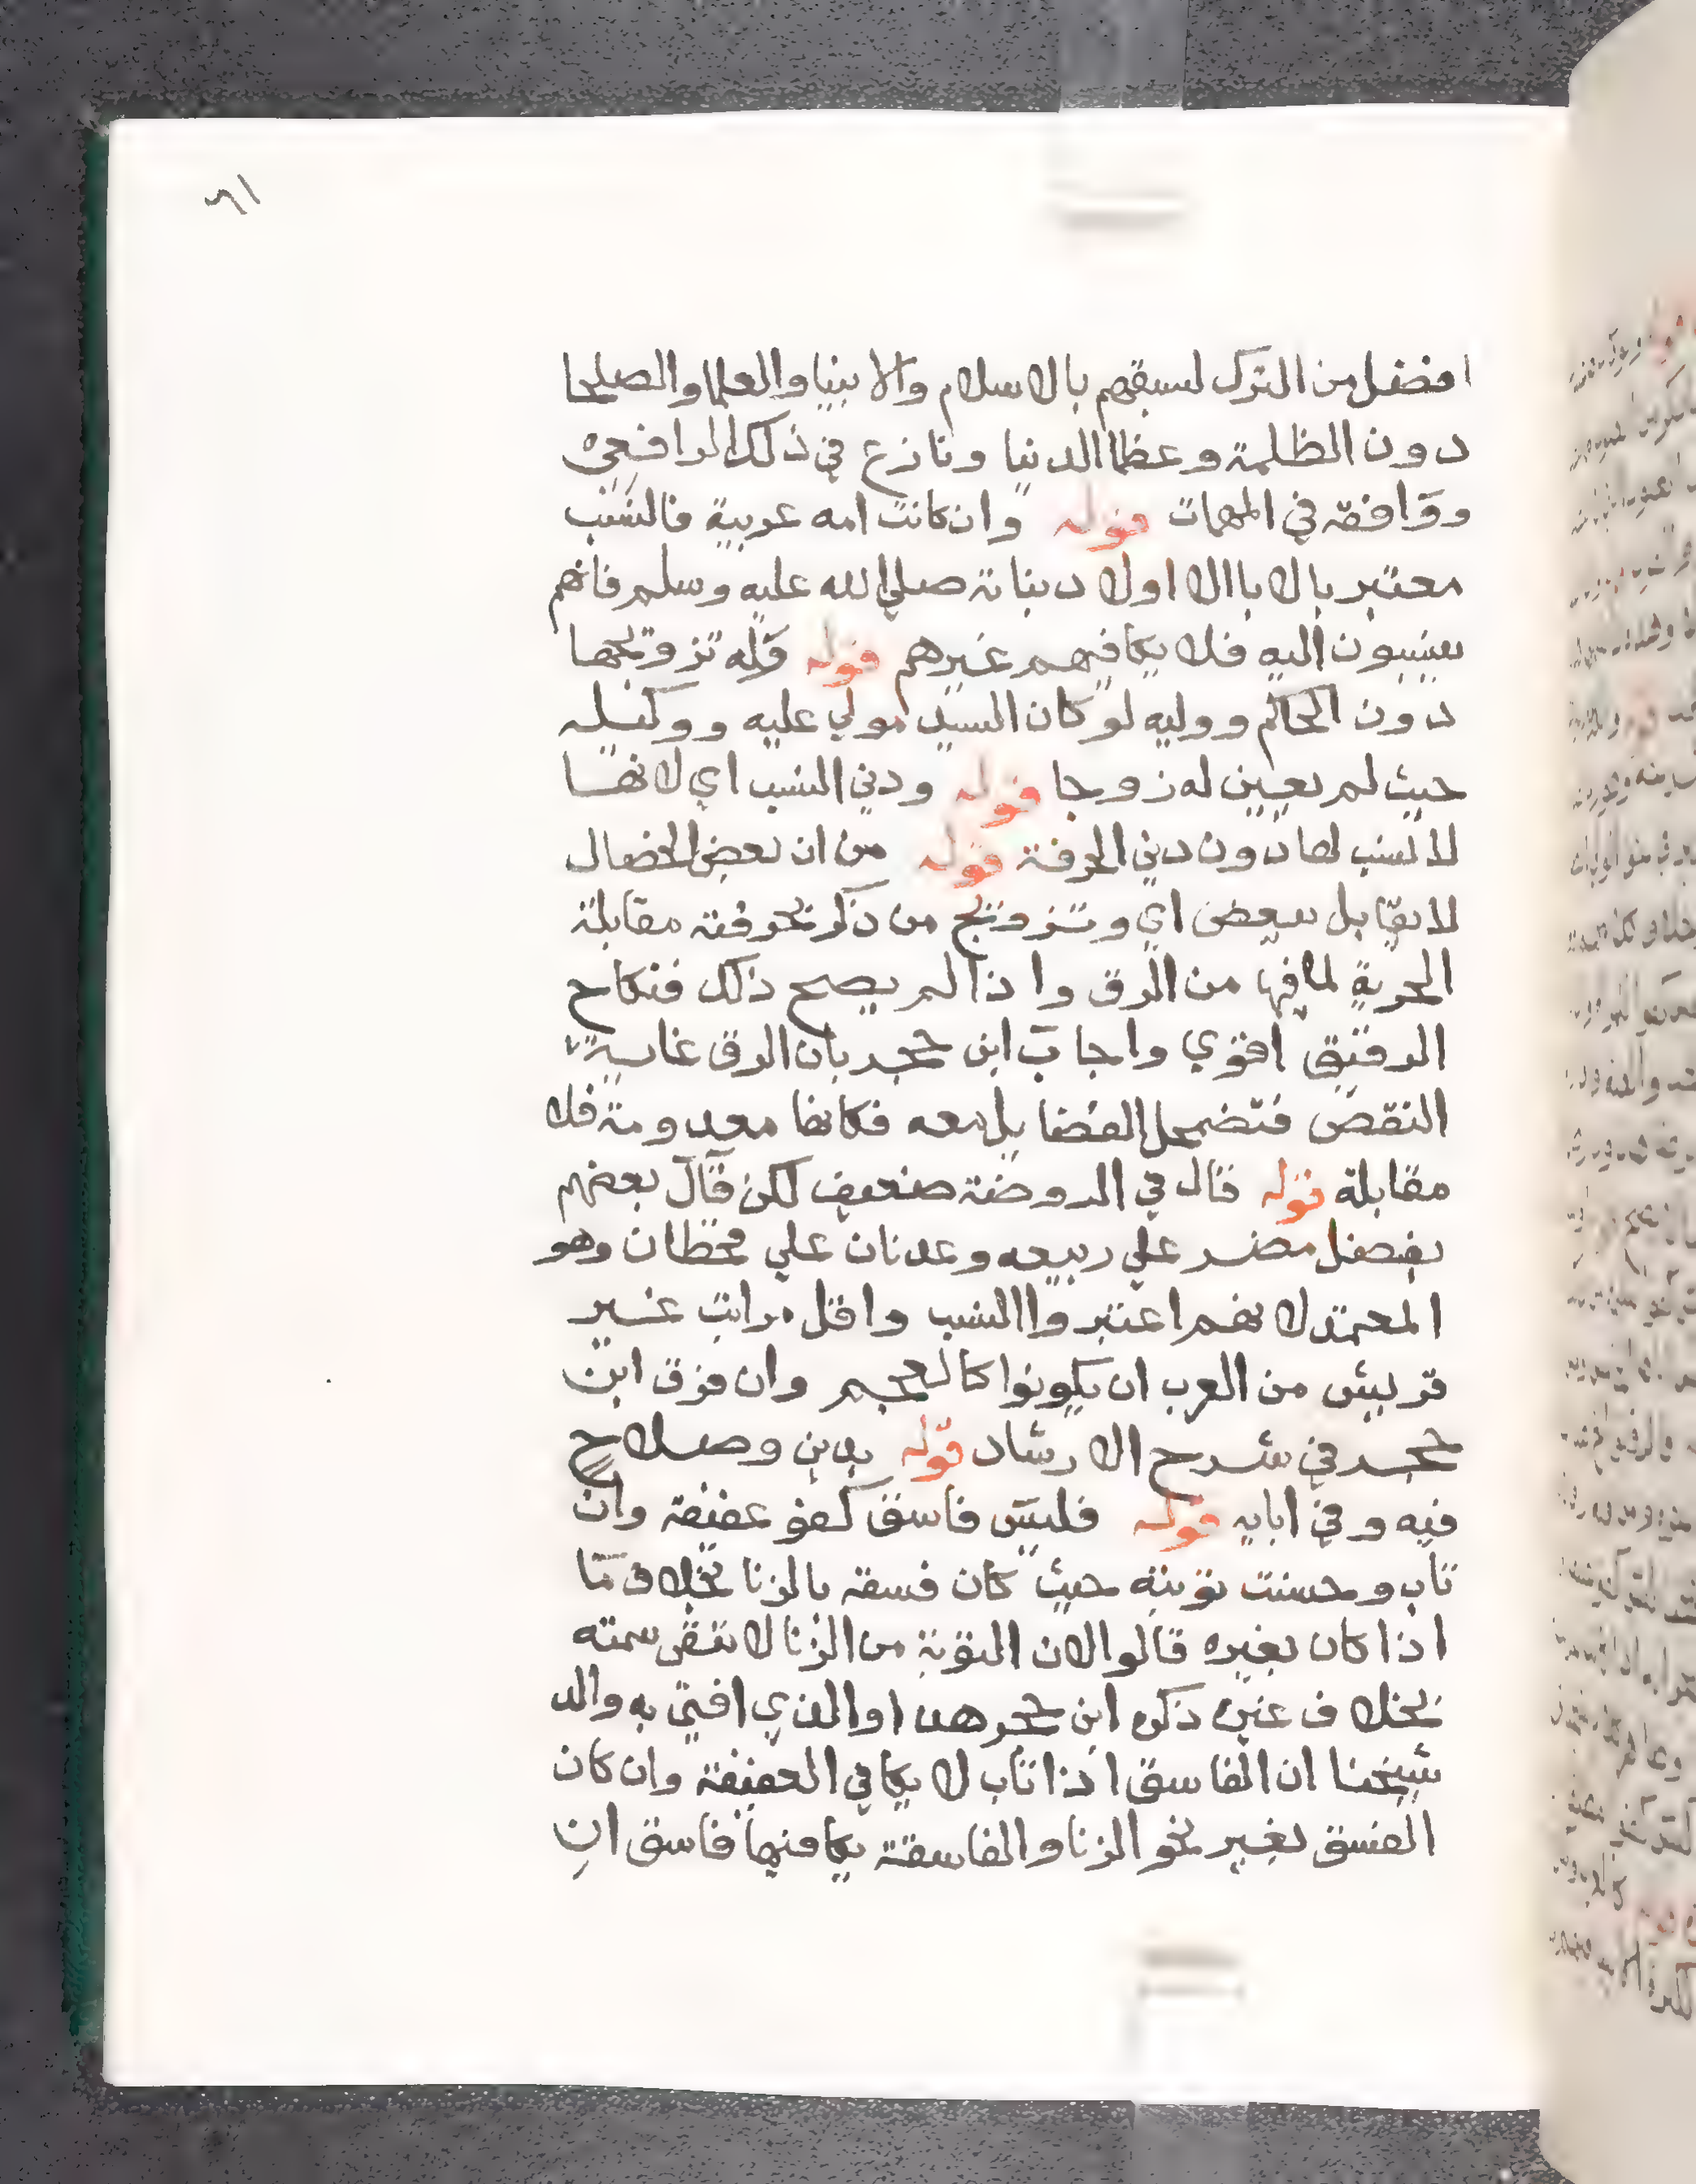 ٦١
افضل من الترك لسبقهم بالاسلام والانبيا والعلما والصلحا
دون الظلمة وعظما الدنيا ونازع في ذلك الرافعي
ووافقه في المهمات قوله وان كانت امه عربية فالنسب
معتبر بالابا الا اولاد بناته صلي الله عليه وسلم فانهم
ينسبون اليه فلا يكافيهم غيرهم قوله فله تزويجها
دون الحاكم ووليه لو كان السيد مولي عليه ووكيله
حيث لم يعين له زوجا قوله ودني النسب اي لانها
لا نسب لها دون دني الحرفة قوله من ان بعض الخصال
لا يقابل ببعض اي وتزويج من ذكر نحو فيه مقابلة
الحرية لما فيها من الرق واذا لم يصح ذلك فنكاح
الرقيق اقوي واجاب ابن حجر بان الرق غاية
النقص فتضمحل الفضايل معه فكانها معدومة فلا
مقابلة قوله قال في الروضة ضعيف لكن قال بعضهم
يفضل مضر علي ربيعه وعدنان علي قحطان وهو
المعتمد لانهم اعتبروا النسب واقل مراتب غير
قريش من العرب ان يكونوا كالعجم وان فرق ابن
حجر في شرح الارشاد قوله بدين وصلاح
فيه وفي ابايه قوله فليس فاسق كفو عفيفة وان
تاب وحسنت توبته حيث كان فسقه بالزنا بخلاف ما
اذا كان بغيره قالوا لان التوبة من الزنا لا تنفي سمته
بخلاف غيره ذكره ابن حجر هدا والذي افتي به والد
شيخنا ان الفاسق اذا تاب لا يكافي العفيفة وان كان
الفسق بغير نحو الزنا والفاسقة يكافيها فاسق ان